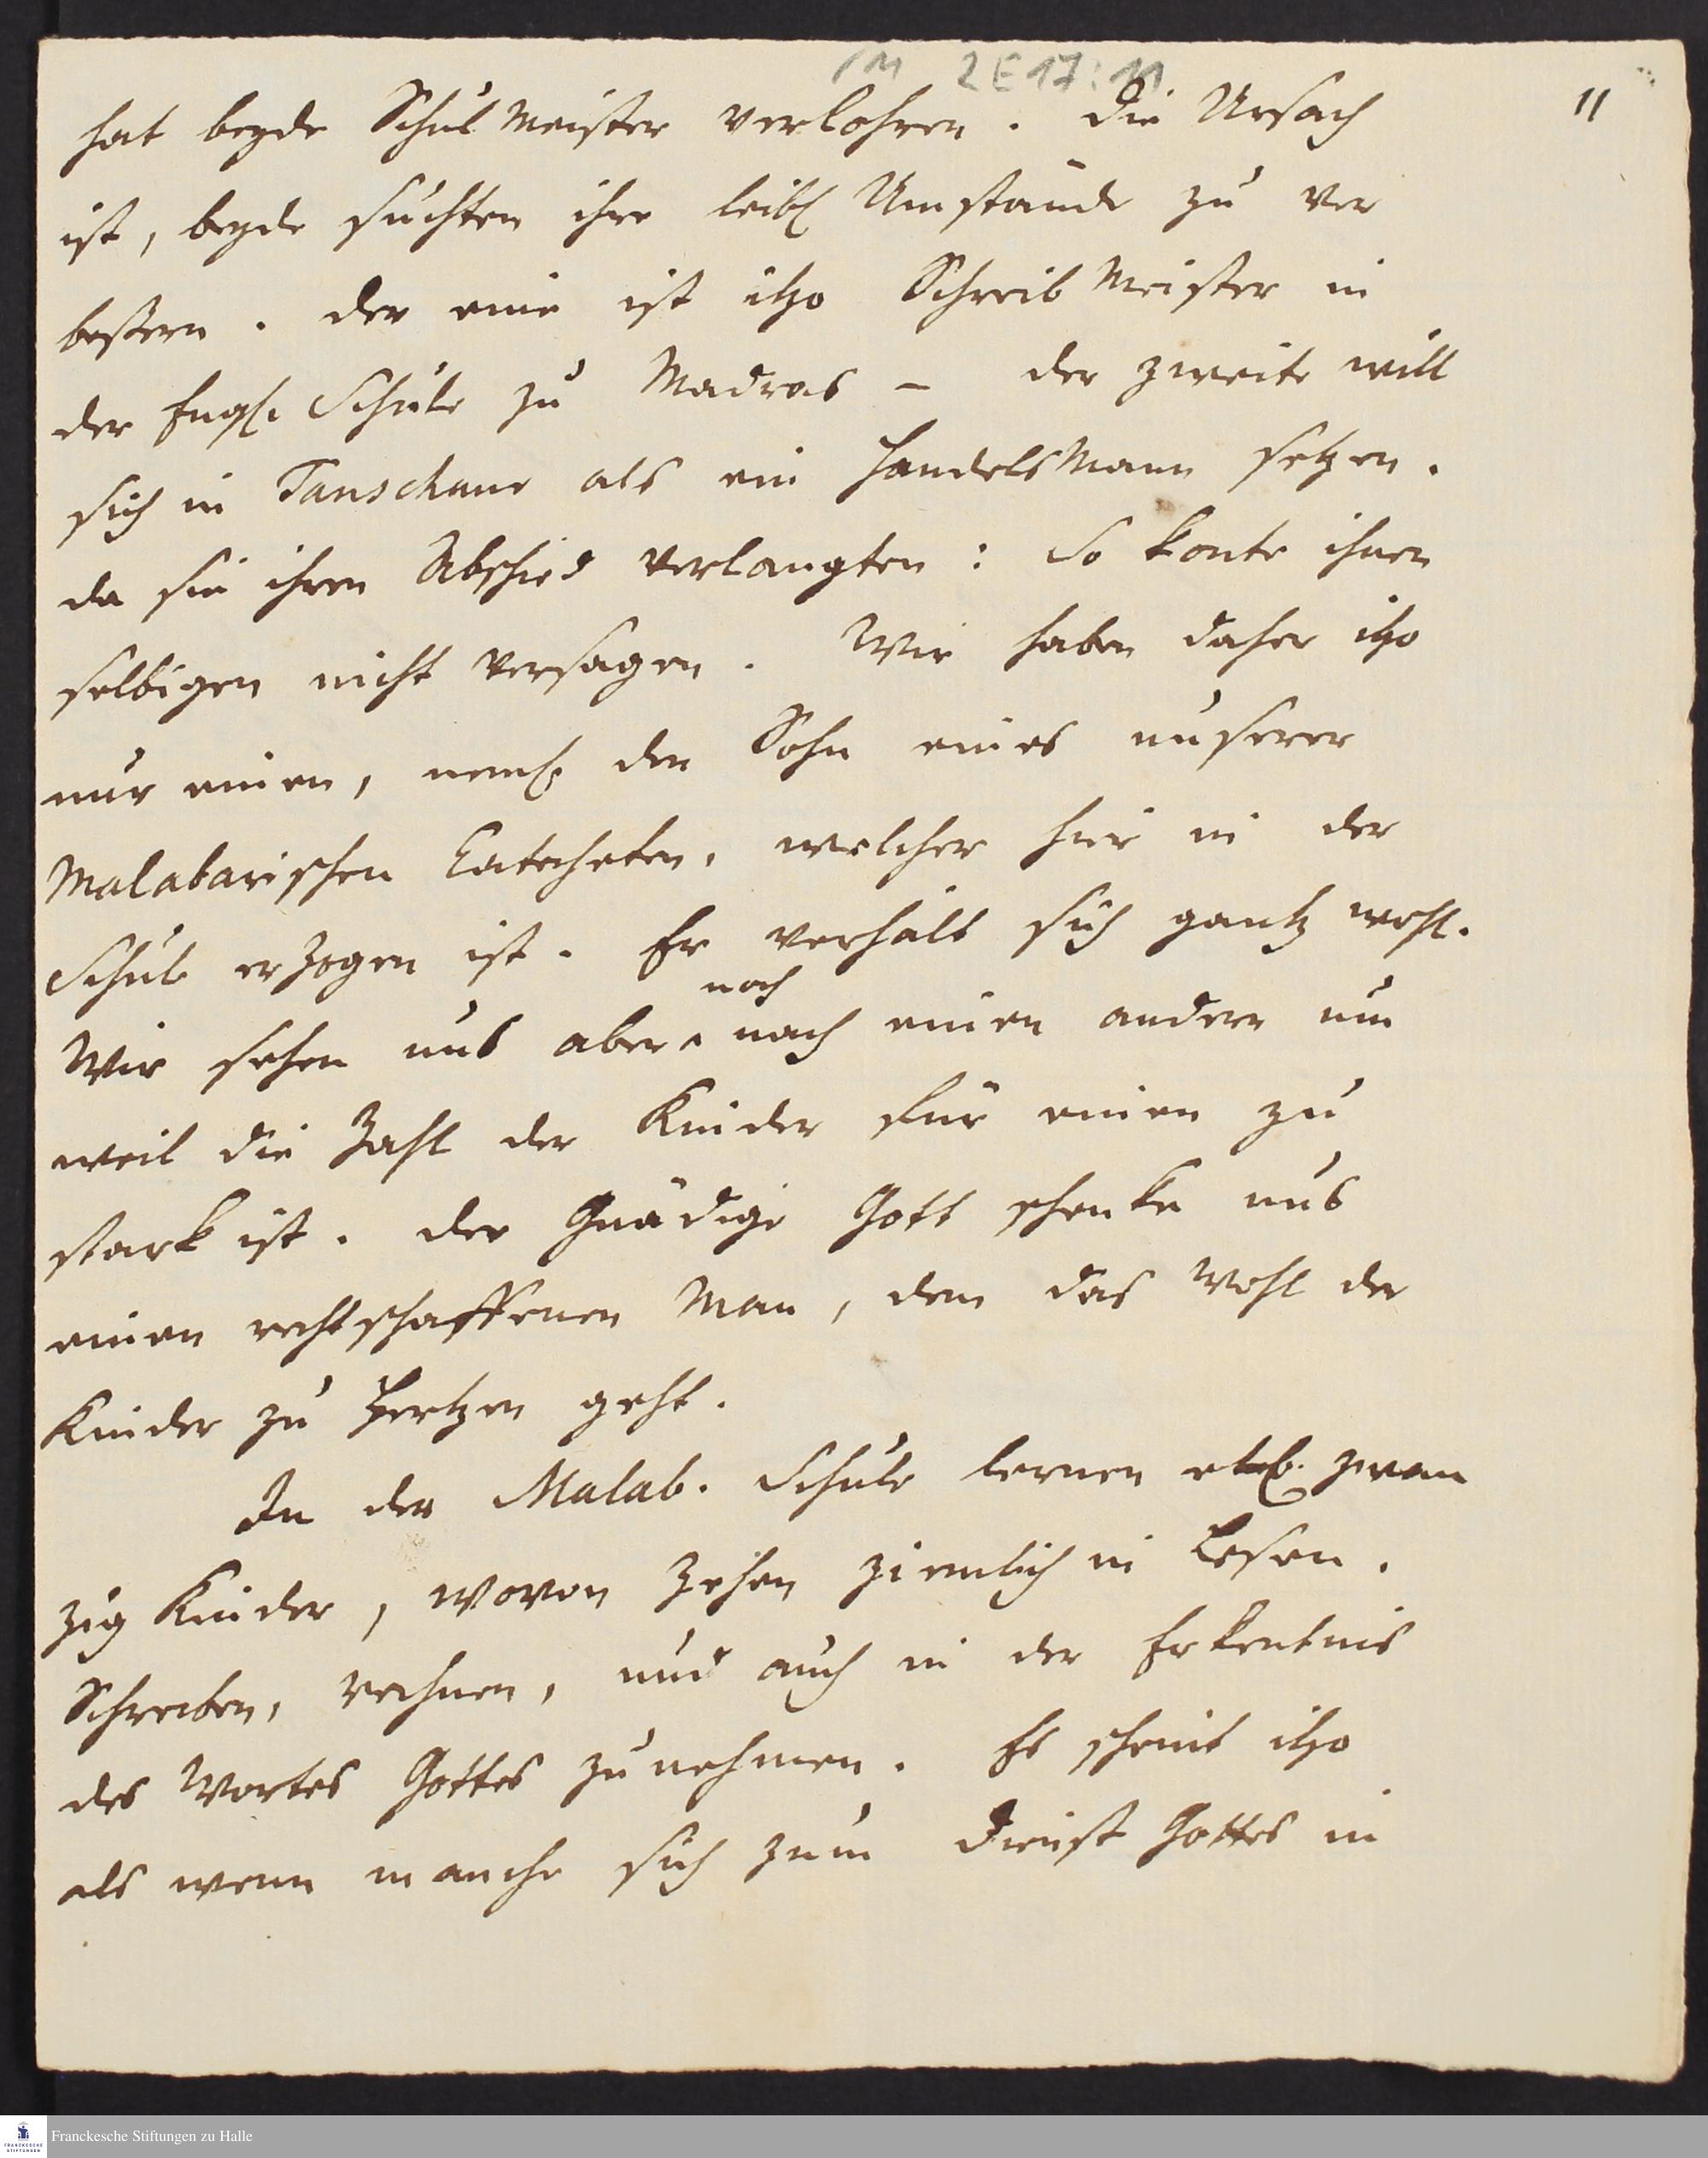 1M 2E17:11
11
hat beyde Schul Meister verlohren. Die Ursach
ist, beyde suchten ihre leibl Umstände zu ver
bessern. der eine ist itzo Schreib Meister in
der Engl. Schule zu Madras – der zweite will
sich in Tanschaur als ein Handels Mann setzen.
da sie ihren Abschied verlangten: So konte ihnen
selbigen nicht versagen. Wir haben daher itzo
nur einen, neml. den Sohn eines unserer
Malabarischen Catecheten, welcher hier in der
Schule erzogen ist. Er verhält sich gantz wohl.
noch
Wir sehen uns aber nach einen andern um
weil die Zahl der Kinder für einen zu
stark ist. der Gnädige Gott schenke uns
einen rechtschaffenen Man, dem das Wohl der
Kinder zu Hertzen geht.
In der Malab. Schule lernen etl. zwan
zig Kinder, wovon Zehen ziemlich in Lesen,
Schreiben, rechnen, und auch in der Erkentnis
des Wortes Gottes zunehmen. Es scheint itzo
als wenn manche sich zum Dienst Gottes in
FRANCKESCHE STIFTUNGEN
Franckesche Stiftungen zu Halle